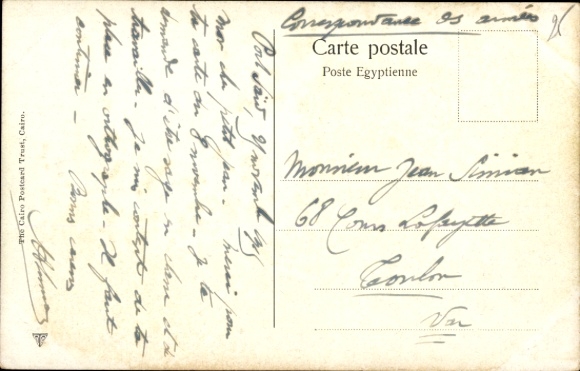 Correspondance des armées
Carte postale
Poste Egyptienne
Monsieur Jean Simian
68 Cours Lafayette
Toulon
Var
Port Saïd, 25 novembre 1915
mon cher petit Jean - merci pour
ta carte du 8 novembre - Je te
demande d'être sage en classe et de
travailler - Je suis content de ta
place en orthographe - Il faut
continuer - Bons baisers
The Cairo Postcard Trust, Cairo.